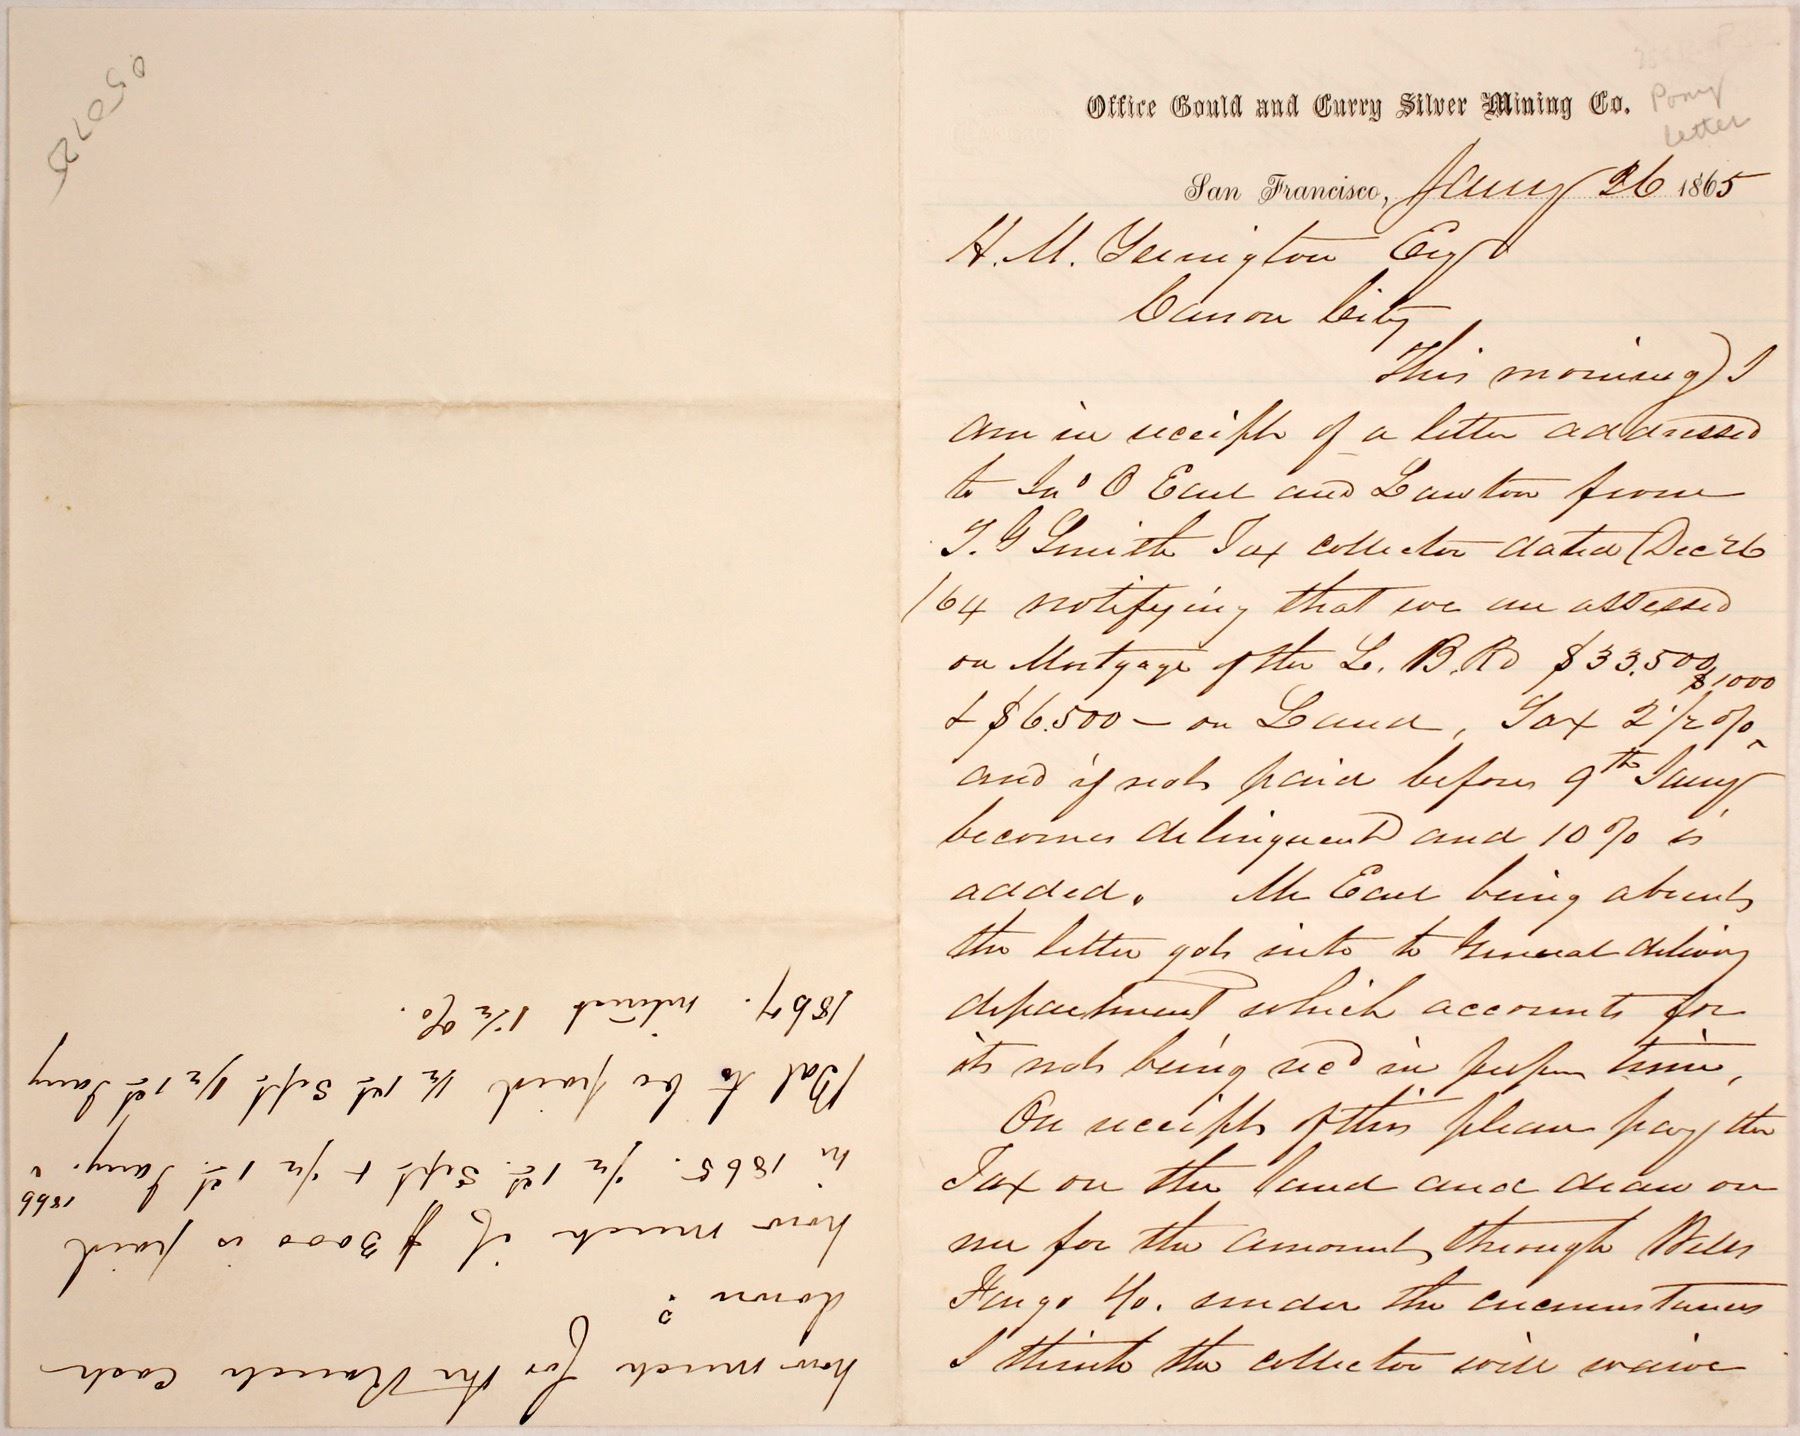 Office Gould and Curry Silver Mining Co.
Pony
letter
San Francisco, Jany 26 1865
H. M. Yerington Esq
Carson City
This morning I
am in receipt of a letter addressed
to Jno O Earl and Lawton from
T. G Smith Tax collector dated Dec 26
/64 notifying that we are assessed
on Mortgage of the L. B. Rd $33.500
$1000
& $6.500 — on Land, Tax 2 1/2 %
and if not paid before 9th Jany
becomes delinquent and 10 % is
added. Mr Earl being absent
the letter got into to General delivery
department which accounts for
its not being recd in proper time,
On receipt of this please pay the
Tax on the land and draw on
me for the amount, through Wells
Fargo & Co. under the circumstances
I think the collector will waive
how much for the Ranch cash
down?
how much if $3000 is paid
in 1865. 1/2 1st. Sept & 1/2 1st. Jany. 1866
Bal to be paid 1/2 1st Sept 1/2 1st Jany
1867. interest 1 1/2 %.